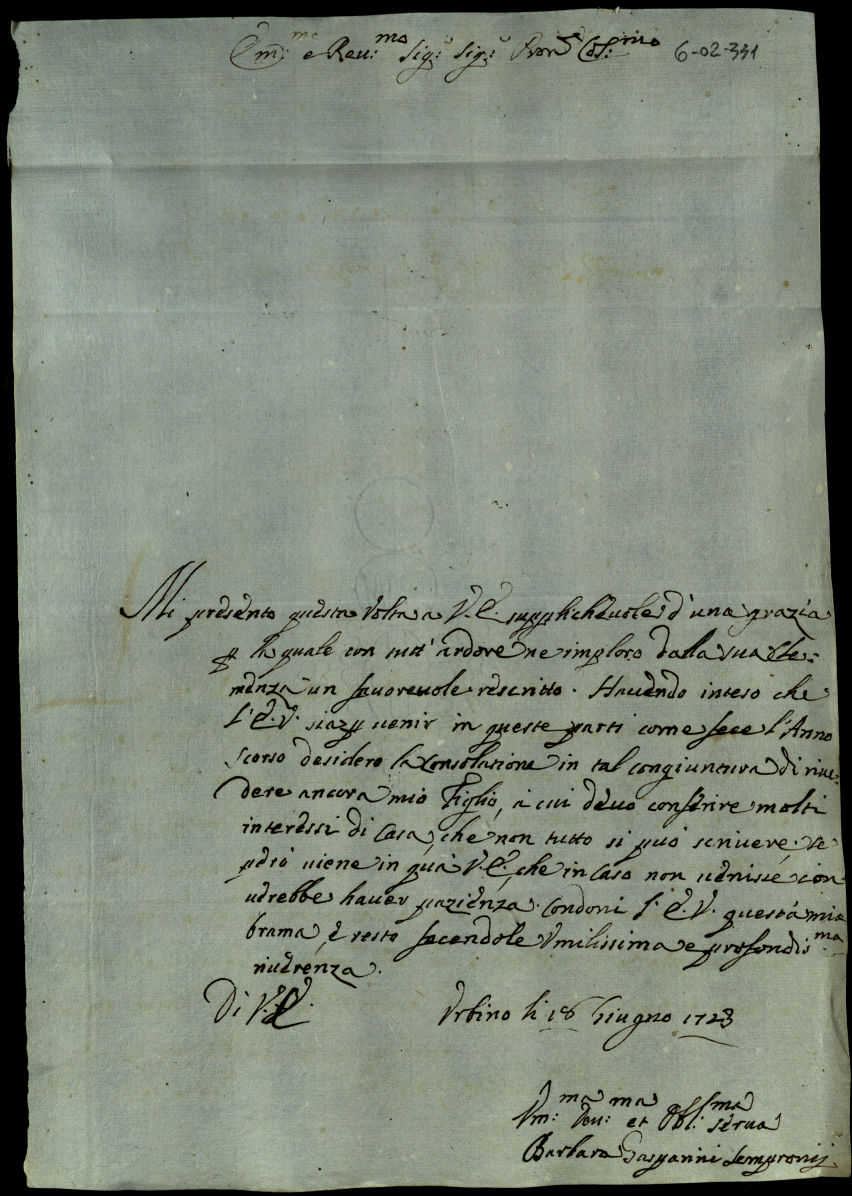 Em:mo e Reu:mo Sig:r Sig:r Pron Col:mo 6-02-341
Mi presento questa volta a V.E. supplicheuole d'una grazia
p la quale con tutt'ardore ne imploro dalla sua Cle=
menza un fauoreuole rescritto. Hauendo inteso che
l'E.V. sia p uenir in queste parti come fece l'Anno
scorso desidero la consolazione in tal congiuntura di riue=
dere ancora mio Figlio, a cui deuo conferire molti
interessi di Casa, che non tutto si può scriuere, se
però uiene in quà V.E., che in caso non uenisse con=
uerebbe hauer pazienza. Condoni l'E.V. questa mia
brama, e resto facendole Vmilissima e profondis:ma
riuerenza.
Di V.E. Vrbino li 16 Giugno 1723
Vm:ma Deu:ma et Obl:ma Serua
Barbara Gasparini Sempronij